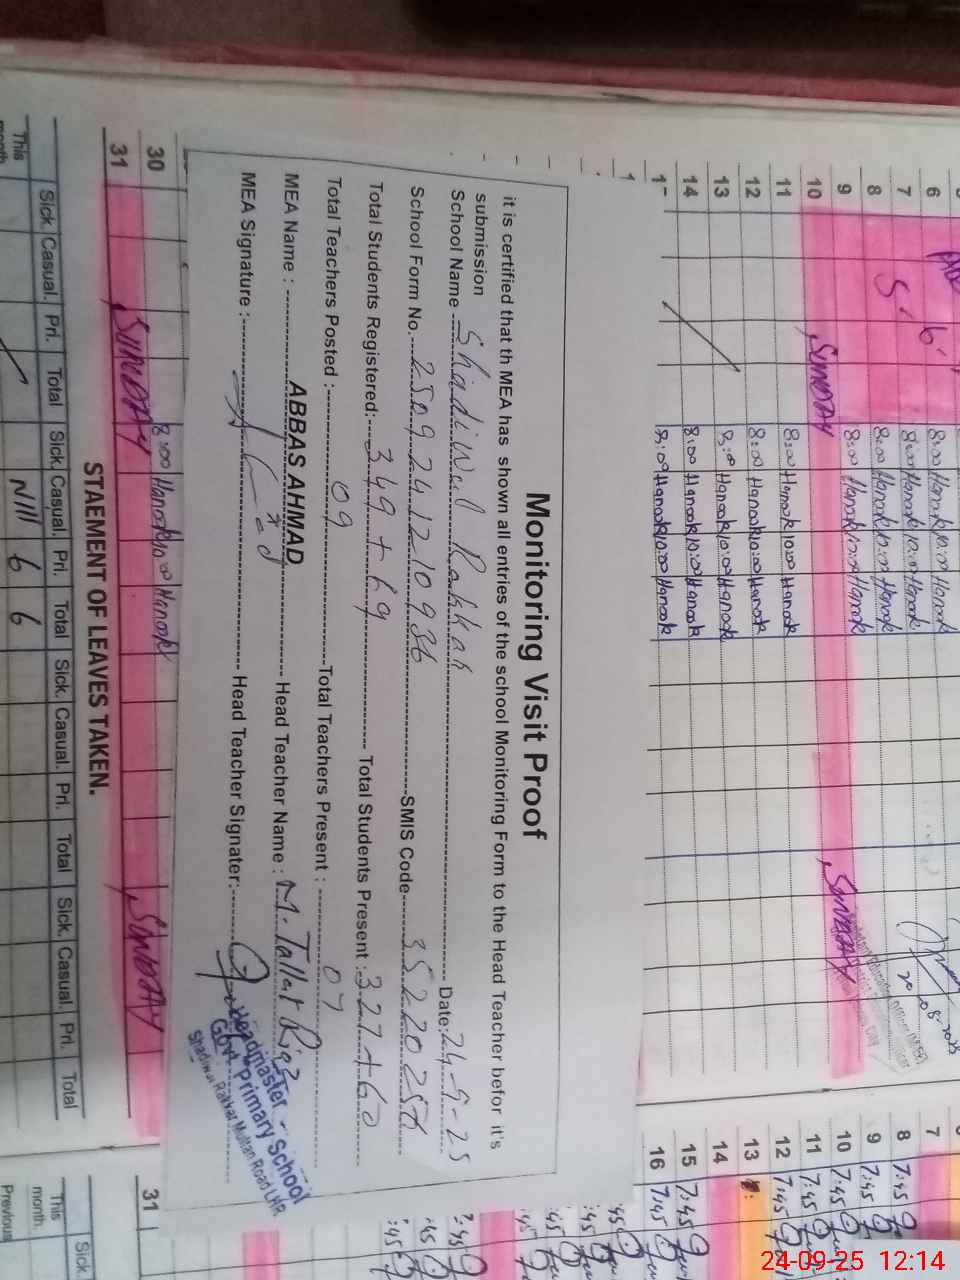 Monitoring Visit Proof
it is certified that th MEA has shown all entries of the school Monitoring Form to the Head Teacher befor it's
submission
School Name Shadiwal Rakkah Date: 24-9-25
School Form No. SMIS Code 35220254
Total Students Registered: 349 + 69 Total Students Present: 327+60
Total Teachers Posted: 09 Total Teachers Present: 07
MEA Name: ABBAS AHMAD Head Teacher Name: M. Tallat Riaz
MEA Signature: Head Teacher Signater:
Headmaster
Govt Primary School
Shadiwal Rakkar Multan Road LHR.
6
7
8
9
10
11
12
13
14
30
31
SUNDAY SUNDAY
8:00 Hanook 10:00 Hanook
8:00 Hanook 10:00 Hanook
8:00 Hanook 10:00 Hanook
8:00 Hanook 10:00 Hanook
8:00 Hanook 10:00 Hanook
8:00 Hanook 10:00 Hanook
8:00 Hanook 10:00 Hanook
8:00 Hanook 10:00 Hanook
8:00 Hanook 10:00 Hanook
8:00 Hanook 10:00 Hanook
SUNDAY SUNDAY
STAEMENT OF LEAVES TAKEN.
Sick. Casual. Pri. Total Sick. Casual. Pri. Total Sick. Casual. Pri. Total Sick. Casual. Pri. Total
This month Nill 6 6
7
8 7:45
9 7:45
10 7:45
11 7:45
12 7:45
13
14
15 7:45
16 7:45
31
Sick.
This month.
Previous
24-09-25 12:14